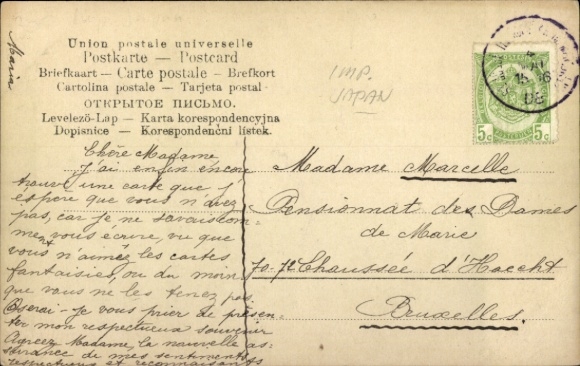 Maria
Union postale universelle
Postkarte — Postcard
Briefkaart — Carte postale — Brefkort
Cartolina postale — Tarjeta postal
ОТКРЫТОЕ ПИСЬМО.
Levelező-Lap — Karta korespondencyjna
Dopisnice — Korespondenční lístek.
IMP.
JAPAN
5c 5c
08
Chère Madame
J'ai enfin encore
trouvé une carte que j'
espère que vous n'avez
pas, car je ne savais com-
ment vous écrire, vu que
vous n'aimez les cartes
fantaisies, ou du moin
que vous ne les tenez pas.
Oserai-je vous prier de présen-
ter mon respectueux souvenir
Agréez Madame, la nouvelle as-
surance de mes sentiments
respectueux et reconnaissants
Madame Marcelle
Pensionnat des Dames
de Marie
70-72 Chaussée d'Haecht
Bruxelles.